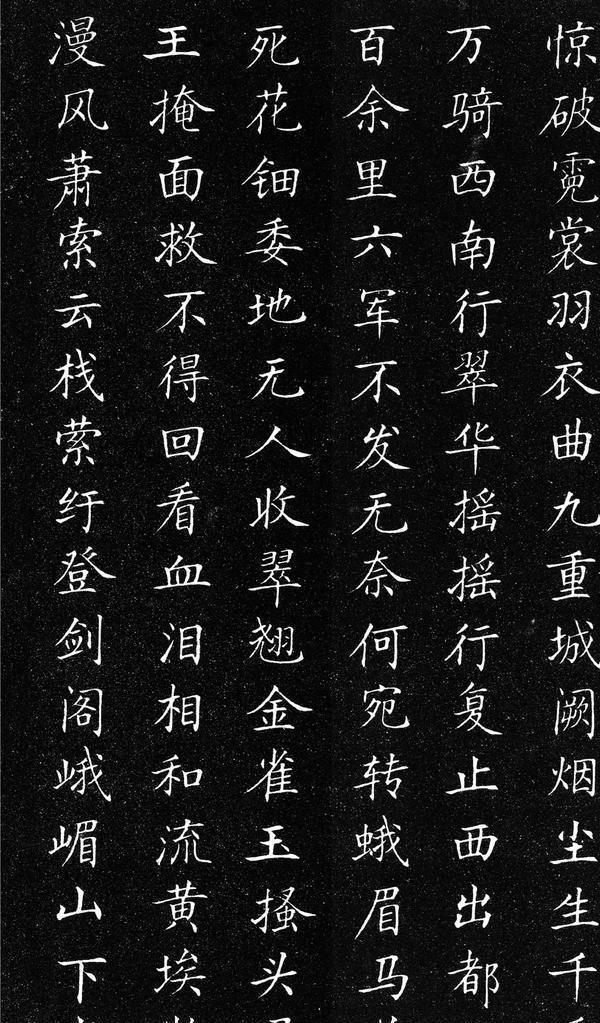 惊破霓裳羽衣曲九重城阙烟尘生千
万骑西南行翠华摇摇行复止西出都
百余里六军不发无奈何宛转蛾眉马
死花钿委地无人收翠翘金雀玉搔头
王掩面救不得回看血泪相和流黄埃
漫风萧索云栈萦纡登剑阁峨嵋山下